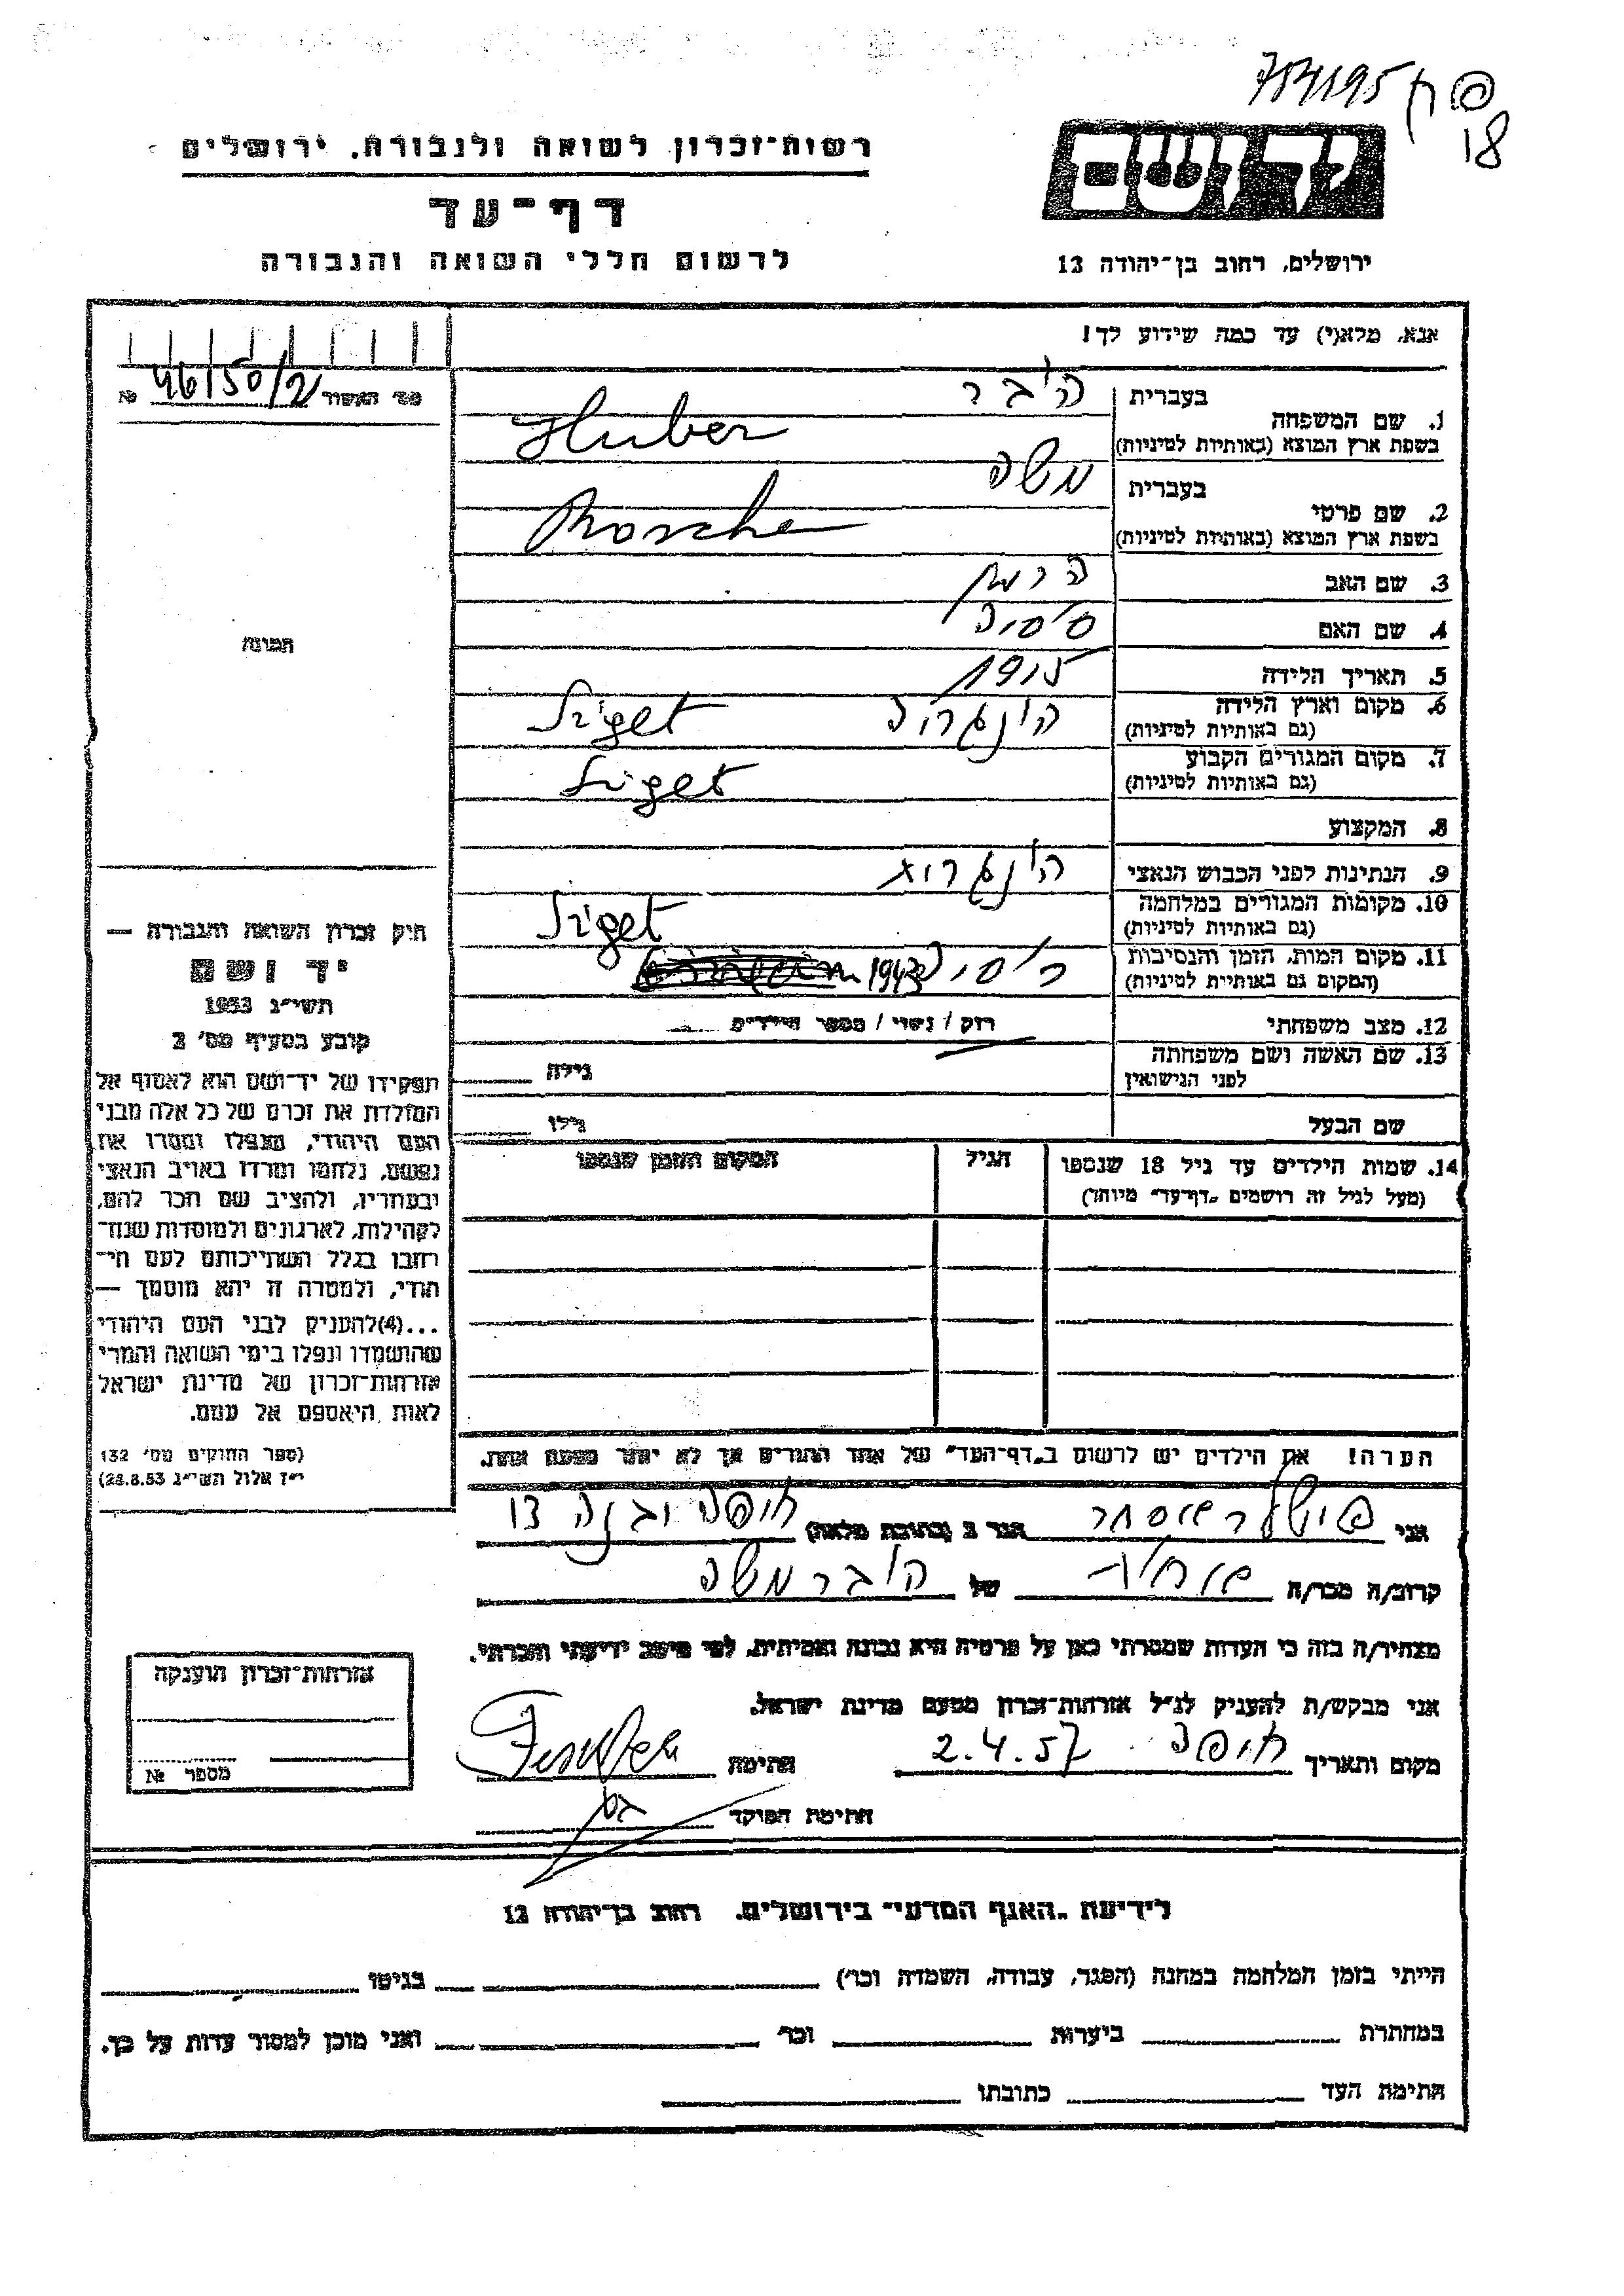 פ ח 754195
18
רשות־זכרון לשואה ולגבורה, ירושלים
דף־עד
לרשום חללי השואה והגבורה
יד ושם
ירושלים, רחוב בן־יהודה 13
אנא, מלא(י) עד כמה שידוע לך!
מס׳ האשור 46/50/2 №
בעברית הובר
1. שם המשפחה
בשפת ארץ המוצא (באותיות לטיניות) Huber
בעברית משה
2. שם פרטי
בשפת ארץ המוצא (באותיות לטיניות) Mosche
3. שם האב
4. שם האם
5. תאריך הלידה 1915
6. מקום וארץ הלידה הונגריה Sziget
(גם באותיות לטיניות)
7. מקום המגורים הקבוע Sziget
(גם באותיות לטיניות)
8. המקצוע
9. הנתינות לפני הכבוש הנאצי
10. מקומות המגורים במלחמה Sziget
(גם באותיות לטיניות)
11. מקום המות, הזמן והנסיבות
(המקום גם באותיות לטיניות)
12. מצב משפחתי רוק / נשוי / מספר הילדים
13. שם האשה ושם משפחתה
לפני הנישואין גילה
שם הבעל גילו
14. שמות הילדים עד גיל 18 שנספו הגיל המקום והזמן שנספו
(מעל לגיל זה רושמים „דף־עד״ מיוחד)
הערה! את הילדים יש לרשום ב„דף־העד״ של אחד ההורים אך לא יותר מפעם אחת.
תמונה
חוק זכרון השואה והגבורה —
יד ושם
תשי״ג 1953
קובע בסעיף מס׳ 2
תפקידו של יד־ושם הוא לאסוף אל
המולדת את זכרם של כל אלה מבני
העם היהודי, שנפלו ומסרו את
נפשם, נלחמו ומרדו באויב הנאצי
ובעוזריו, ולהציב שם וזכר להם,
לקהילות, לארגונים ולמוסדות שנח־
רבו בגלל השתייכותם לעם הי־
הודי, ולמטרה זו יהא מוסמך —
...(4)להעניק לבני העם היהודי
שהושמדו ונפלו בימי השואה והמרי
אזרחות־זכרון של מדינת ישראל
לאות היאספם אל עמם.
(ספר החוקים מס׳ 132
י״ז אלול תשי״ג 28.8.53)
אני הגר ב (כתובת מלאה) חיפה
קרוב/ה מכר/ה של הובר משה
מצהיר/ה בזה כי העדות שמסרתי כאן על פרטיה היא נכונה ואמיתית, לפי מיטב ידיעתי והכרתי.
אני מבקש/ת להעניק לנ״ל אזרחות־זכרון מטעם מדינת ישראל.
מקום ותאריך חיפה 2.4.57 חתימה
חתימת הפוקד
אזרחות־זכרון הוענקה
מספר №
לידיעת „האגף המדעי״ בירושלים, רחוב בן־יהודה 13
הייתי בזמן המלחמה במחנה (הסגר, עבודה, השמדה וכו׳) בגיטו
במחתרת ביערות וכו׳ ואני מוכן למסור עדות על כך.
חתימת העד כתובתו